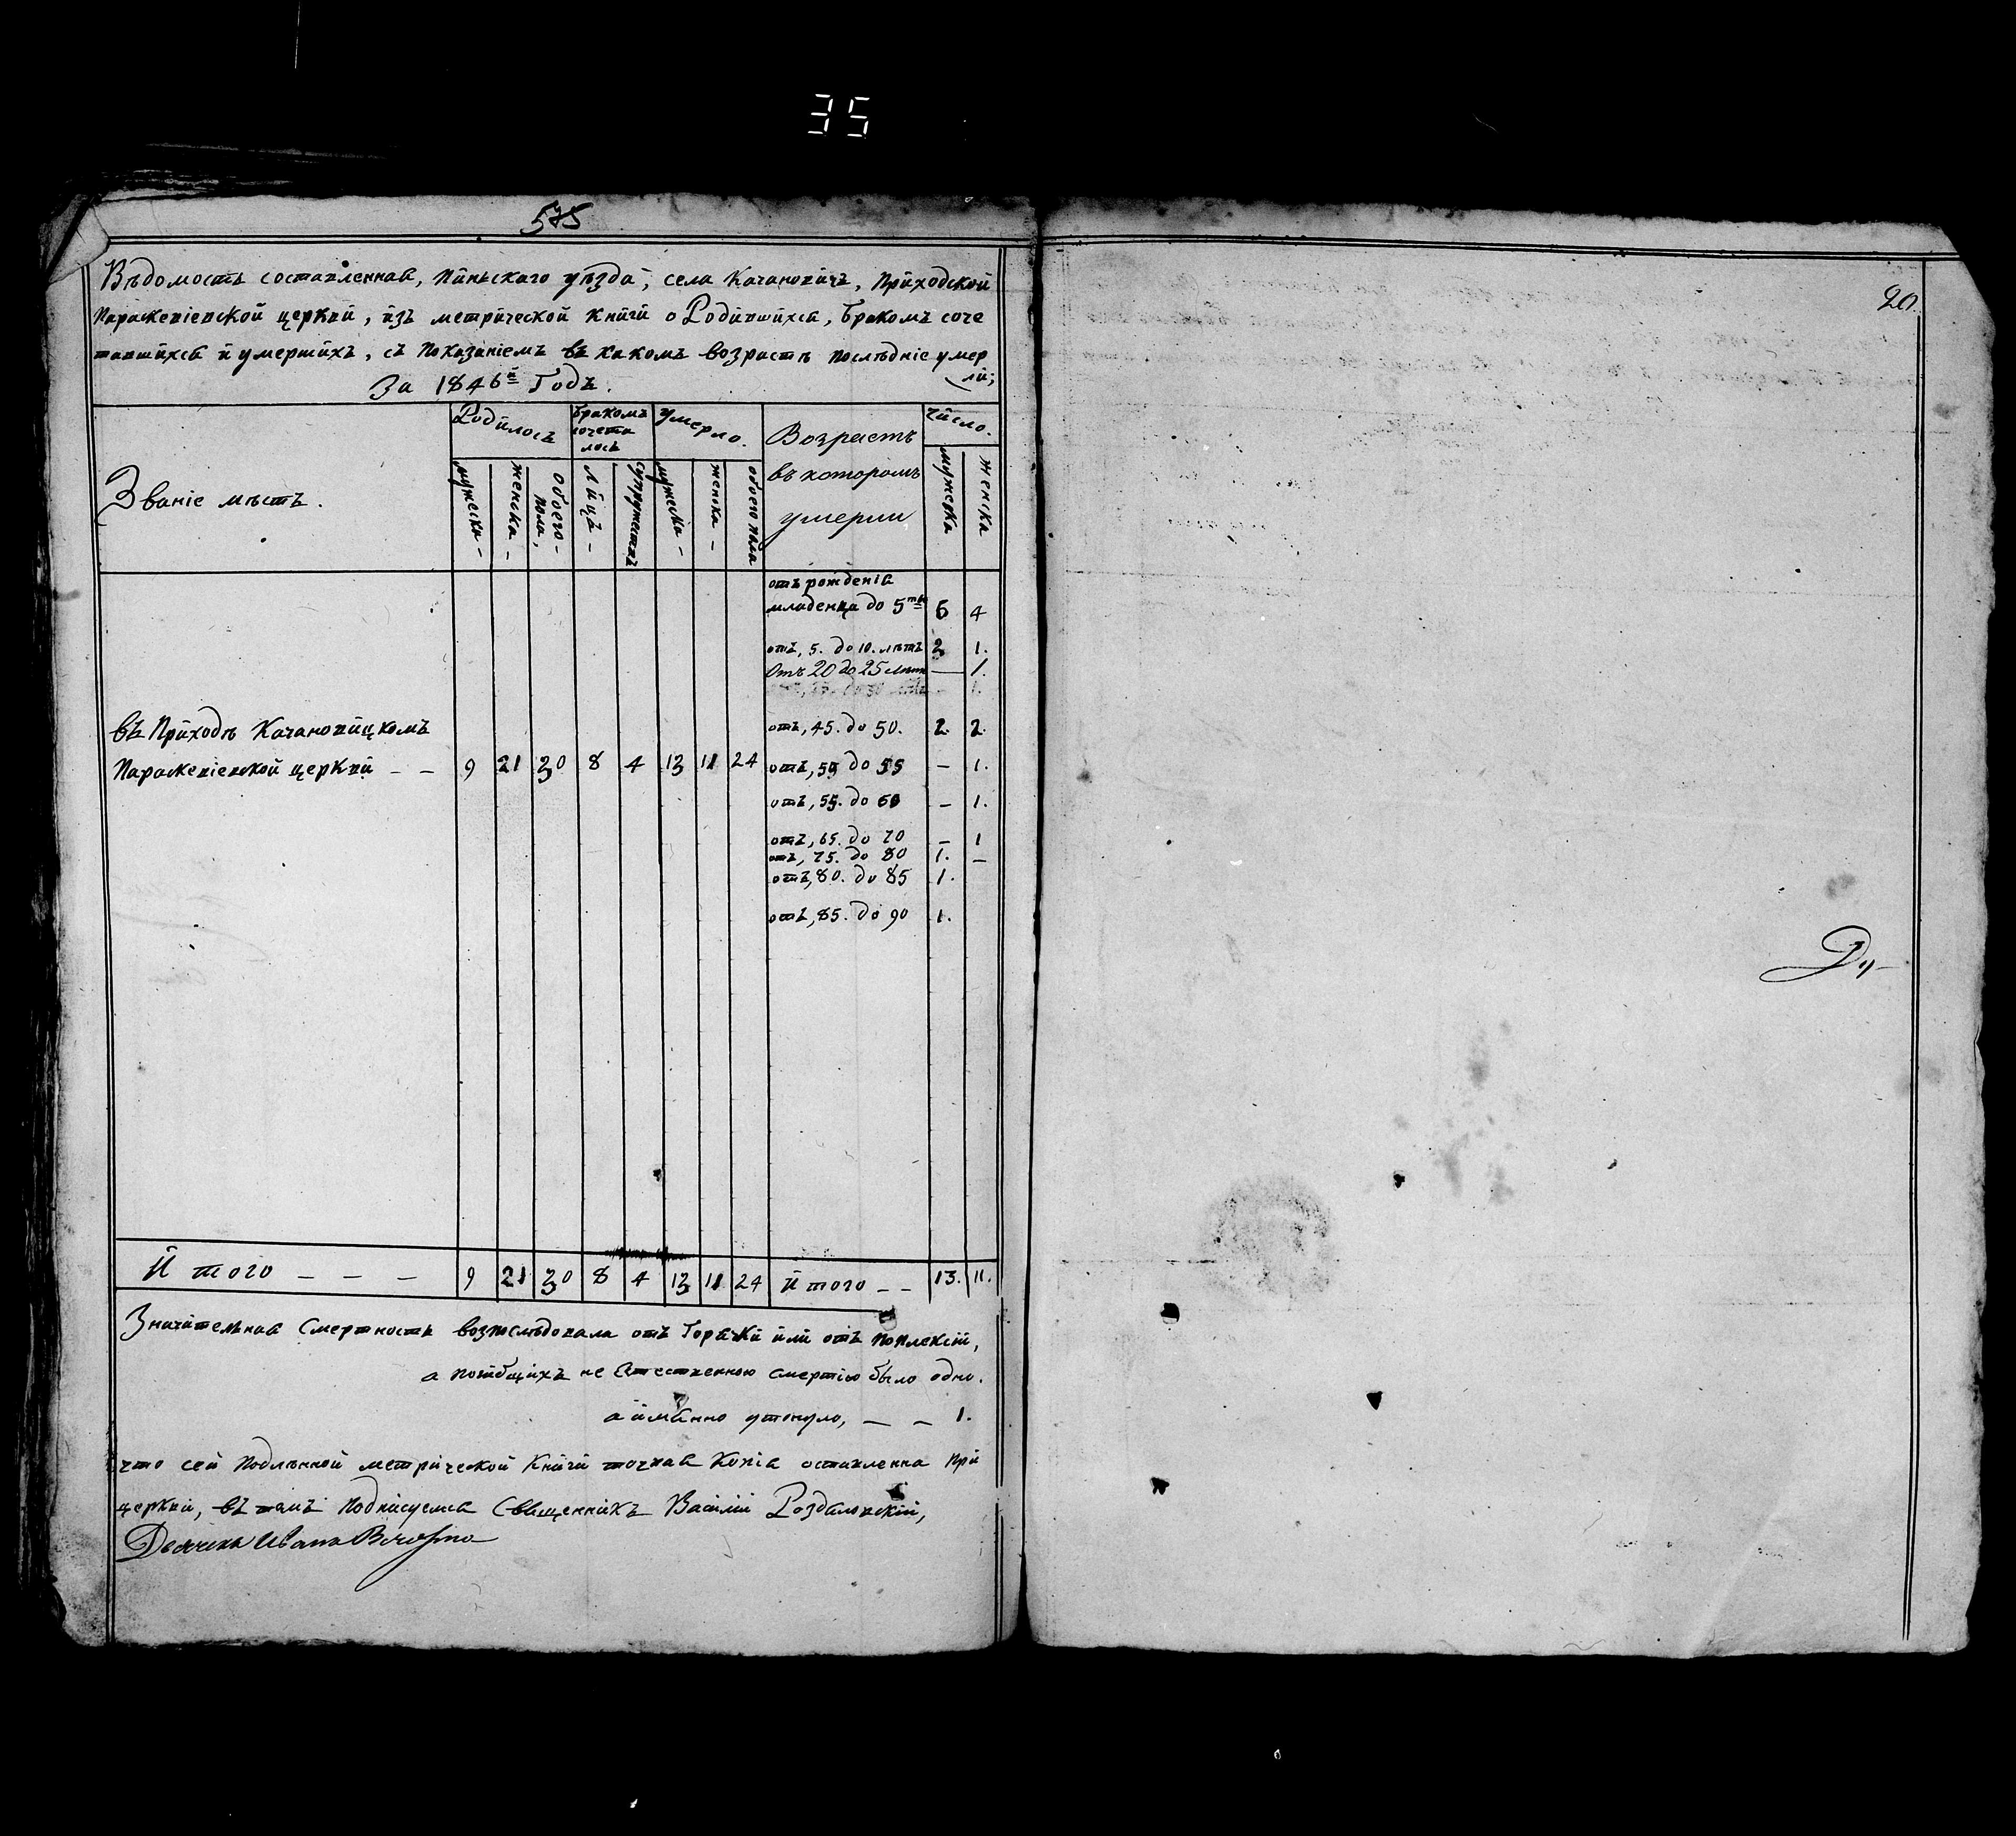 35
575
Вѣдомость составленная, Пинскаго уѣзда, села Качановичъ, Приходской
Параскевіевской церкви, изъ метрической книги о Родившихся, бракомъ соче
тавшихся и умершихъ, съ показаніемъ въ какомъ возрастѣ послѣдніе умер
ли;
За 1846й Годъ.
Званіе мѣстъ.
Родилось
Бракомъ сочета лось
умерло.
Возрастъ въ которомъ умерли
Число.
мужеска - женска - обоего - пола, лицъ - супружествъ мужеска - женска - обоего пола мужеска женска
отъ рожденія
младенца до 5ти 6 4
отъ, 5. до 10. лѣтъ 2 1.
Отъ 20 до 25 лѣтъ — 1.
отъ, 45. до 50. 2. 2.
въ Приходѣ Качановицкомъ
Параскевіевской церкви - - 9 21 30 8 4 13 11 24 отъ, 50 до 55 - 1.
отъ, 55. до 60 - 1.
отъ, 65. до 70 - 1
отъ, 75. до 80 1. -
отъ, 80. до 85 1.
отъ, 85. до 90 1.
Итого - - - 9 21 30 8 4 13 11 24 Итого - - 13. 11.
Значительная Смертность возпослѣдовала отъ Горячки или отъ Поплексіи,
а погибщихъ не Естественною смертію было одно.
а имѣнно утонуло, - - 1.
что сей Подлѣнной метрической Книги точная Копія оставленна При
церкви, въ томъ Подписуемся Священникъ Василій Роздяловскій,
Дьячекъ Иванъ
20.